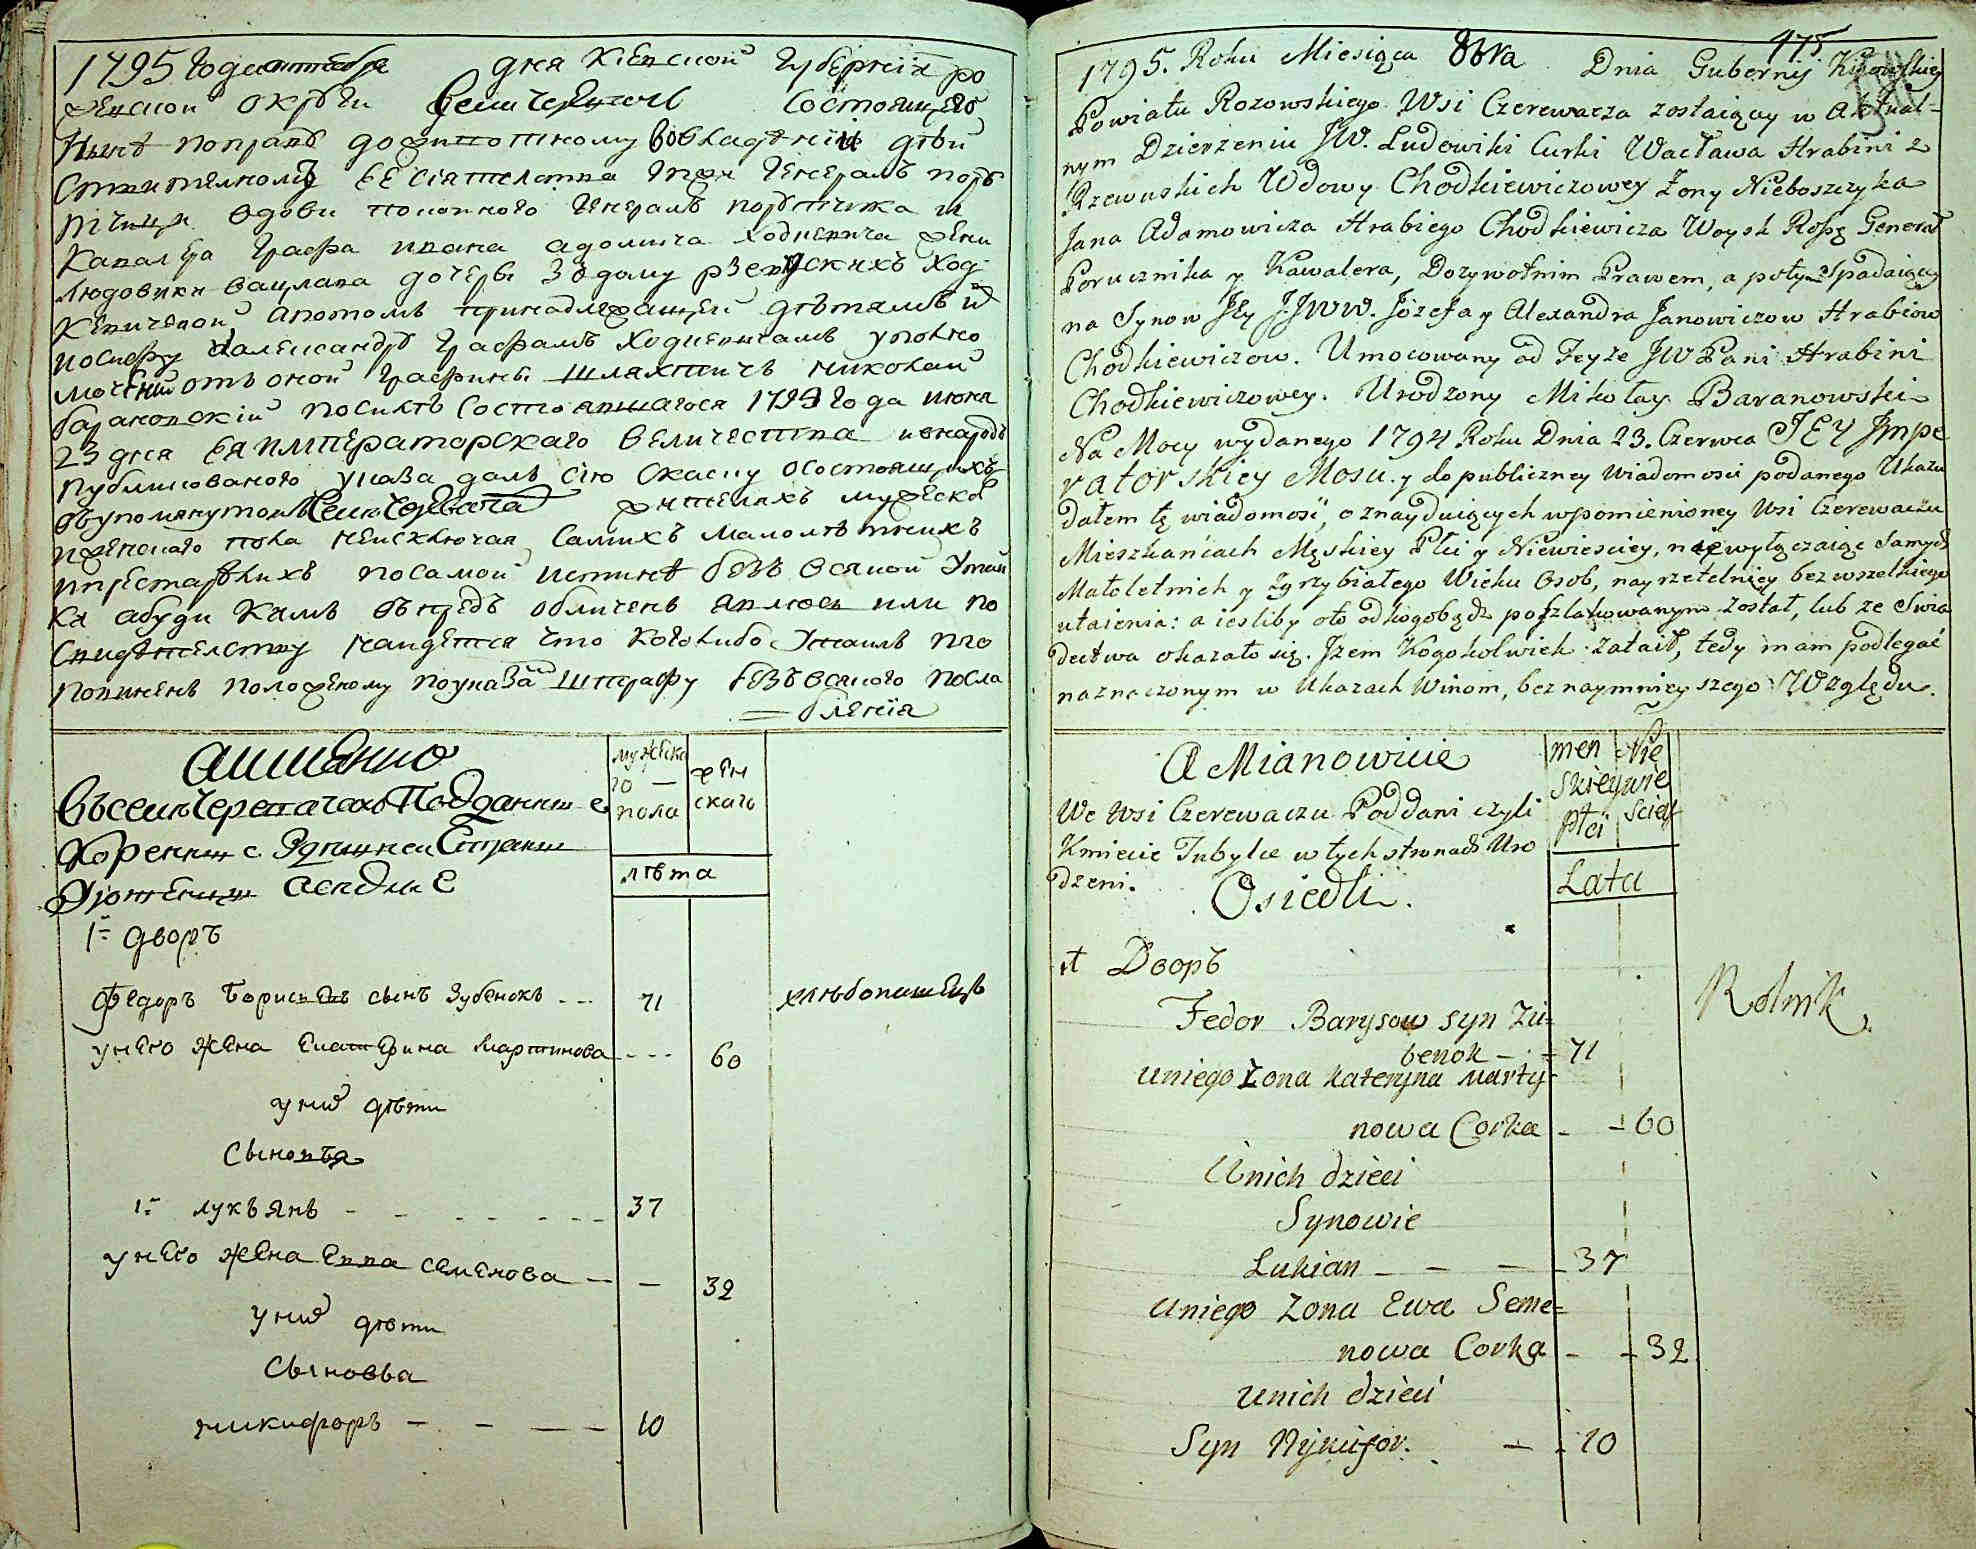 1795 Года октебра дня Киевской Губернiи ро
женской округи Села Черевачь состоящего
ныне по праве доживотному во владѣнiи дѣй
Ствителномъ ее сiятелства Гжи Генералъ пору
тчицы вдовы покойного Генералъ порутчика и
Кавалера Графа ивана адолиича ходкевича жены
людовики вацлава дочеры з дому рзевускихъ ход
кевичевой, а потомъ принадлежащей дѣтямъ и
иосифу и александру Графамъ Ходкевичамъ уполно
моченый отъ оной Графины шляхтичъ николай
барановскiй по силѣ состоявшагося 1794 года июня
23 дня ея императорского величества и в народѣ
публикованого указа далъ сiю скаску о состоящихъ
въ упомянутой Селе Черевача жителяхъ мужеска
и женского пола не исключая самихъ малолѣтнихъ
и престарѣлихъ по самой истинѣ безъ всякой утай
ки а буди камъ въ предь обличенъ явлюсь или по
свидѣтелству найдется что кого либо утаилъ то
повиненъ положеному по указамъ штрафу безъ всякого посла
бленiя
а имянно
въ селе Черевачахъ Подданные
Коренные с Здешней Страны
Урожденцы аседлие
мужеска
го
пола
жен
скаго
лѣта
1й дворъ
Федоръ Борисовъ сынъ Зубенокъ - - - 71 хлѣбопашецъ
у него жена Екатерина Мартинова - - - 60
у них дѣти
Сыновья
1й лукъянъ - - - - - - 37
у него жена Евва семенова - - 32
у них дѣти
Сыновья
никифоръ - - - - 10
475
1795. Roku Miesiąca 8bra Dnia Gubernij Kijowskiey
Powiatu Rozowskiego Wsi Czerewacza zostaiącey w Aktual-
nym Dzierzeniu JW. Ludowiki Curki Wacława Hrabini z
Rzewuskich Wdowy Chodkiewiczowey Żony Nieboszczyka
Jana Adamowicza Hrabiego Chodkiewicza Woysk Rossy Generał
Porucznika y Kawalera, Dozywotnim Prawem, a potym Spadaiącey
na Synow Jey JJWW. Józefa y Alexandra Janowiczow Hrabiow
Chodkiewiczow. Umocowany od Teyże JWPani Hrabini
Chodkiewiczowey. Urodzony Mikołay Baranowski
Na Mocy wydanego 1794 Roku Dnia 23. Czerwca JEY Jmpe
ratorskiey Mosci y do publiczney wiadomosci podanego Ukazu
dałem tę wiadomość, o znayduiących w pomienioney Wsi Czerewaczu
Mieszkańcach Męskiey Płci y Niewiesciey, nie wyłączaiąc Samych
Małoletnich y Zgrzybiałego Wieku Osob, nayrzetelniey bez wszelkiego
utaienia: a iesliby oto od kogobądz poszlakowanym został, lub ze Swia
dectwa okazało się. Jżem Kogokolwiek zataił, tedy mam podlegać
naznaczonym w Ukazach Winom, bez naymnieyszego Względu.
A Mianowicie
We Wsi Czerewaczu Poddani czyli
Kmiecie Tubylce w tych stronach Uro
dzeni.
Osiedli.
men
skiey
płci
Nie
wie
sciey
Lata
Дворъ
Fedor Barysow syn Zu-
benok - - 71 Rolnik
u niego Żona Kateryna Marty-
nowa Corka - - 60
U nich dzieci
Synowie
Lukian - - - - 37
u niego Zona Ewa Seme-
nowa Corka - - 32
u nich dzieci
Syn Nykifor. - - 10